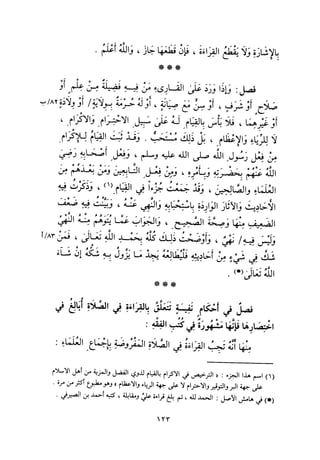 بِالإِشَارَةِ وَلَا يَقْطَعُ القِرَاءَةَ ، فَإِنْ قَطَعَهَا جَازَ ، وَاللَّهُ أَعْلَمُ .
* * *
فصل : وَإِذَا وَرَدَ عَلَى القَارِىءِ مَنْ فِيهِ فَضِيلَةٌ مِنْ عِلْمٍ أَوْ
صَلاحٍ أَوْ شَرَفٍ ، أَوْ سِنٍّ مَعَ صِيَانَةٍ ، أَوْ لَهُ حُرْمَةٌ بِوِلَايَةٍ / أَوْ وِلَادَةٍ ٨٢/ب
أَوْ غَيْرِهِمَا ، فَلَا بَأْسَ بِالقِيَامِ لَهُ عَلَى سَبِيلِ الاحْتِرَامِ وَالإِكْرَامِ ،
لَا لِلرِّيَاءِ وَالإِعْظَامِ ، بَلْ ذَلِكَ مُسْتَحَبٌّ . وَقَدْ ثَبَتَ القِيَامُ لِلإِكْرَامِ
مِنْ فِعْلِ رَسُولِ اللَّهِ صلى الله عليه وسلم ، وَفِعْلِ أَصْحَابِهِ رَضِيَ
اللَّهُ عَنْهُمْ بِحَضْرَتِهِ وَبِأَمْرِهِ ، وَمِنْ فِعْلِ التَّابِعِينَ وَمَنْ بَعْدَهُمْ مِنَ
العُلَمَاءِ وَالصَّالِحِينَ ، وَقَدْ جَمَعْتُ جُزْءًا فِي القِيَامِ (١) ، وَذَكَرْتُ فِيهِ
الأَحَادِيثَ وَالآثَارَ الوَارِدَةَ بِاسْتِحْبَابِهِ وَالنَّهْيِ عَنْهُ ، وَبَيَّنْتُ فِيهِ ضَعْفَ
الضَّعِيفِ مِنْهَا وَصِحَّةَ الصَّحِيحِ ، وَالجَوَابَ عَمَّا يُتَوَهَّمُ مِنْهُ النَّهْيُ
وَلَيْسَ فِيهِ / نَهْيٌ ، وَأَوْضَحْتُ ذَلِكَ كُلَّهُ بِحَمْدِ اللَّهِ تَعَالَى ، فَمَنْ ٨٣/أ
شَكَّ فِي شَيْءٍ مِنْ أَحَادِيثِهِ فَلْيُطَالِعْهُ يَجِدْ مَا يَزُولُ بِهِ شَكُّهُ إِنْ شَاءَ
اللَّهُ تَعَالَى (*) .
* * *
فصلٌ فِي أَحْكَامٍ نَفِيسَةٍ تَتَعَلَّقُ بِالقِرَاءَةِ فِي الصَّلَاةِ أُبَالِغُ فِي
اخْتِصَارِهَا فَإِنَّهَا مَشْهُورَةٌ فِي كُتُبِ الفِقْهِ :
مِنْهَا أَنَّهُ تَجِبُ القِرَاءَةُ فِي الصَّلَاةِ المَفْرُوضَةِ بِإِجْمَاعِ العُلَمَاءِ :
(١) اسم هذا الجزء : « الترخيص في الاكرام بالقيام لذوي الفضل والمزية من أهل الاسلام
على جهة البر والتوقير والاحترام لا على جهة الرياء والاعظام » وهو مطبوع أكثر من مرة .
(*) في هامش الأصل : الحمد لله ، تم بلغ قراءة عليّ ومقابلة ، كتبه أحمد بن الصيرفي .
١٢٣